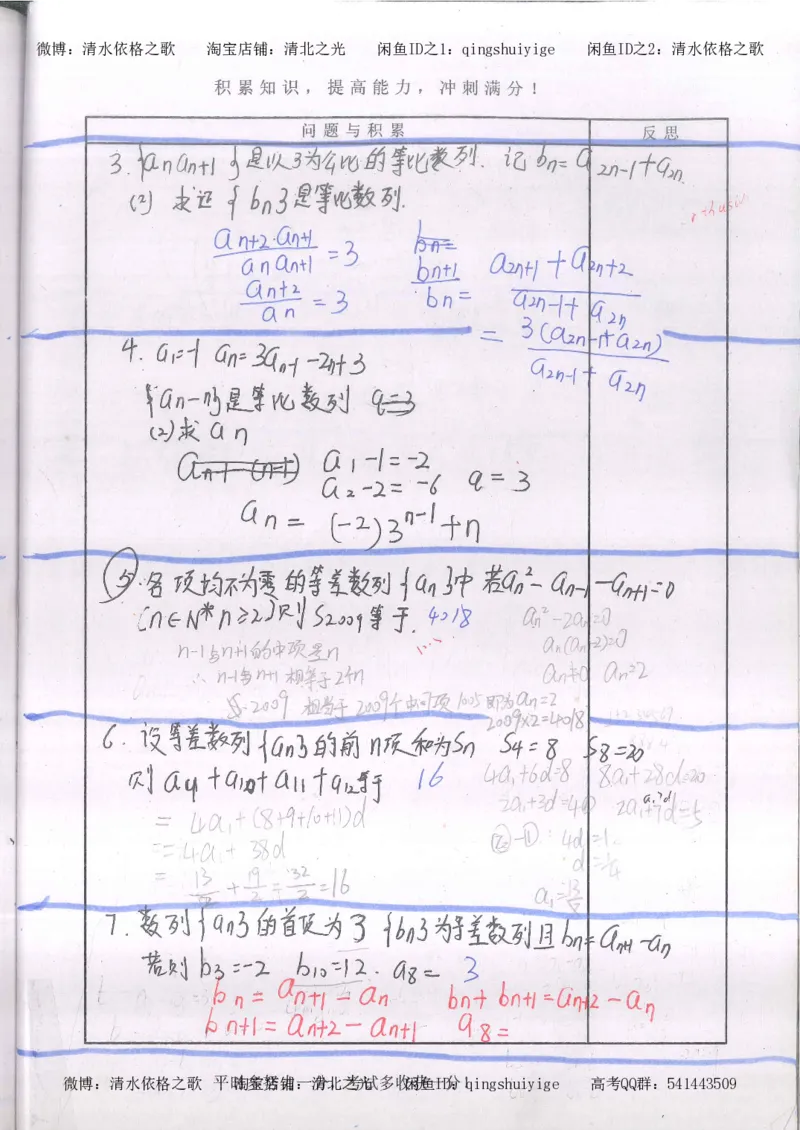 微博：清水依格之歌 淘宝店铺：清北之光 闲鱼ID之1：qingshuiyige 闲鱼ID之2：清水依格之歌
积累知识，提高能力，冲刺满分！
问题与积累 反思
3. {an an+1}是以3为公比的等比数列. 记 bn= a2n-1+a2n.
(2) 求证{bn}是等比数列.
an+2·an+1 / an an+1 = 3
an+2 / an = 3
bn+1 / bn = a2n+1 + a2n+2 / a2n-1 + a2n
= 3(a2n-1+a2n) / a2n-1 + a2n
4. a1=-1 an=3an-1-2n+3
{an-n}是等比数列 q=3
(2)求an
a1-1=-2
a2-2=-6 q=3
an= (-2)3^n-1+n
5. 各项均不为零的等差数列{an}中 若an²-an-1-an+1=0
(n∈N* n≥2)则S2009等于. 4018
an²-2an=0
an(an-2)=0
an≠0 an=2
n-1与n+1的中项是n
∴ n-1与n+1相等于2个n
S2009 相当于2009个中项1005即为an=2
2009×2=4018
6. 设等差数列{an}的前n项和为Sn S4=8 S8=20
则 a9+a10+a11+a12等于 16
4a1+6d=8 8a1+28d=20
2a1+3d=4① 2a1+7d=5
②-①: 4d=1
d=1/4
= 4a1+(8+9+10+11)d
= 4a1+38d
= 13/2 + 19/2 = 32/2 = 16
7. 数列{an}的首项为3 {bn}为等差数列且bn=an+1-an
若则b3=-2 b10=12. a8= 3
bn=an+1-an bn+bn+1=an+2-an
bn+1=an+2-an+1 a8=
微博：清水依格之歌 淘宝店铺：清北之光 闲鱼ID：qingshuiyige 高考QQ群：541443509